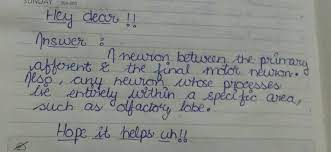 SUNDAY
Hey dear !!
Answer :
A neuron between the primary
afferent & the final motor neuron.
Also, any neuron whose processes
lie entirely within a specific area,
such as olfactory lobe.
Hope it helps uh!!